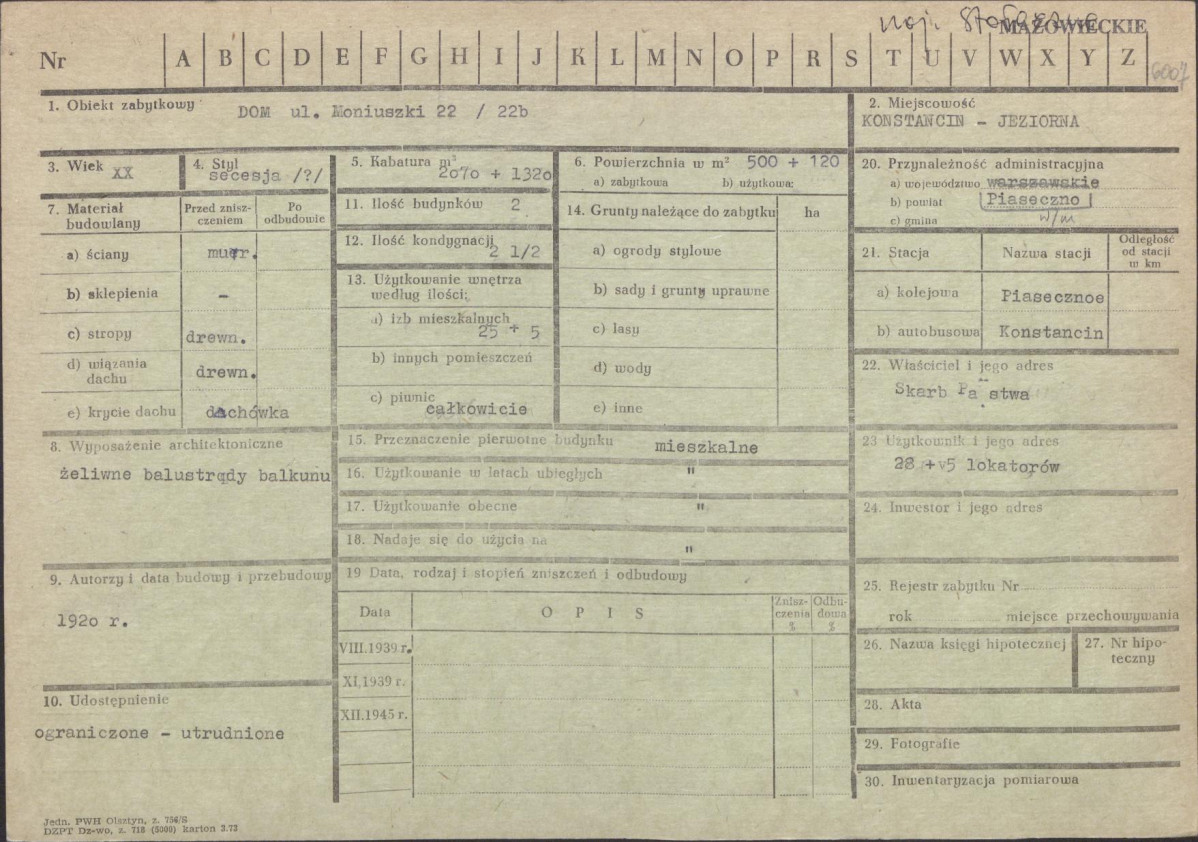 woj. Stołeczne
MAZOWIECKIE
Nr A B C D E F G H I J K L M N O P R S T U V W X Y Z
6007
1. Obiekt zabytkowy DOM ul. Moniuszki 22 / 22b
2. Miejscowość
KONSTANCIN - JEZIORNA
3. Wiek XX
4. Styl
secesja /?/
5. Kabatura m³
2070 + 1320
6. Powierzchnia w m² 500 + 120
a) zabytkowa b) użytkowa:
7. Materiał budowlany
Przed znisz-
czeniem
Po
odbudowie
a) ściany murr.
b) sklepienia -
c) stropy drewn.
d) wiązania
dachu drewn.
e) krycie dachu dachówka
8. Wyposażenie architektoniczne
żeliwne balustrady balkunu
9. Autorzy i data budowy i przebudowy
1920 r.
10. Udostępnienie
ograniczone - utrudnione
11. Ilość budynków 2
12. Ilość kondygnacji
2 1/2
13. Użytkowanie wnętrza
według ilości:
a) izb mieszkalnych
25 + 5
b) innych pomieszczeń
c) piwnic
całkowicie
14. Grunty należące do zabytku ha
a) ogrody stylowe
b) sady i grunty uprawne
c) lasy
d) wody
e) inne
15. Przeznaczenie pierwotne budynku mieszkalne
16. Użytkowanie w latach ubiegłych "
17. Użytkowanie obecne "
18. Nadaje się do użycia na "
19 Data, rodzaj i stopień zniszczeń i odbudowy
Data O P I S
Znisz-
czenia
%
Odbu-
dowa
%
VIII.1939 r.
XI.1939 r.
XII.1945 r.
20. Przynależność administracyjna
a) województwo warszawskie
b) powiat Piaseczno
c) gmina w/m
21. Stacja Nazwa stacji
Odległość
od stacji
w km
a) kolejowa Piasecznoe
b) autobusowa Konstancin
22. Właściciel i jego adres
Skarb Pa stwa
23 Użytkownik i jego adres
28 +v5 lokatorów
24. Inwestor i jego adres
25. Rejestr zabytku Nr
rok miejsce przechowywania
26. Nazwa księgi hipotecznej
27. Nr hipo-
teczny
28. Akta
29. Fotografie
30. Inwentaryzacja pomiarowa
Jedn. PWH Olsztyn, z. 756/S
DZPT Dz-wo, z. 718 (5000) karton 3.73